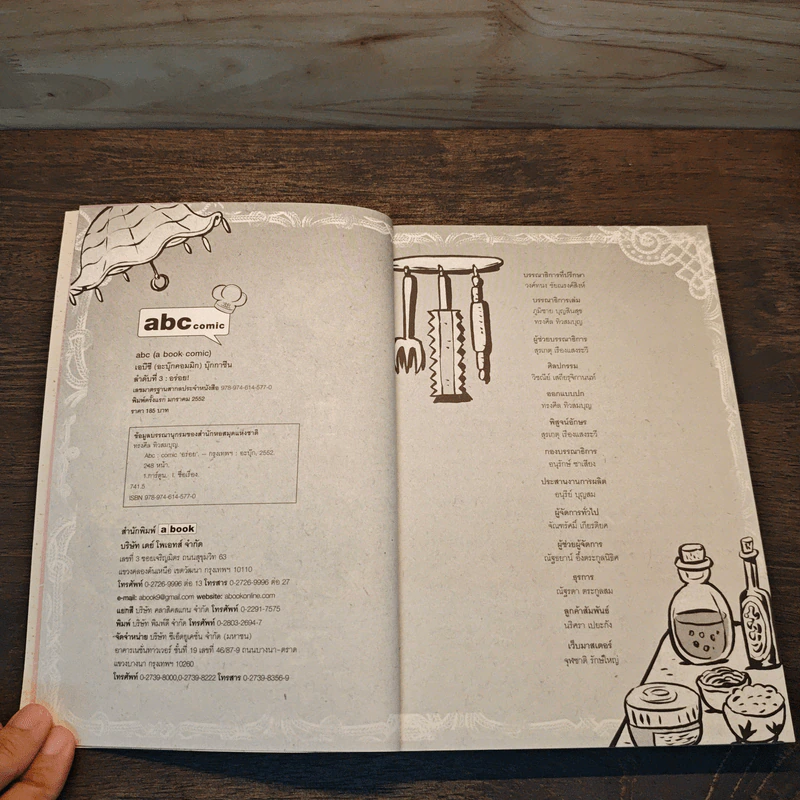 abc comic
abc (a book comic)
เอบีซี (อะบุ๊กคอมมิก) บุ๊กกาซีน
ลำดับที่ 3 : อร่อย!
เลขมาตรฐานสากลประจำหนังสือ 978-974-614-577-0
พิมพ์ครั้งแรก มกราคม 2552
ราคา 165 บาท
ข้อมูลบรรณานุกรมของสำนักหอสมุดแห่งชาติ
ทรงศีล ทิวสมบุญ.
Abc : comic 'อร่อย'. -- กรุงเทพฯ : อะบุ๊ก, 2552
248 หน้า.
1.การ์ตูน. I. ชื่อเรื่อง.
741.5
ISBN 978-974-614-577-0
สำนักพิมพ์ a book
บริษัท เดย์ โพเอทส์ จำกัด
เลขที่ 3 ซอยเจริญมิตร ถนนสุขุมวิท 63
แขวงคลองตันเหนือ เขตวัฒนา กรุงเทพฯ 10110
โทรศัพท์ 0-2726-9996 ต่อ 13 โทรสาร 0-2726-9996 ต่อ 27
e-mail: abook9@gmail.com website: abookonline.com
แยกสี บริษัท คลาสิคสแกน จำกัด โทรศัพท์ 0-2291-7575
พิมพ์ บริษัท พิมพ์ดี จำกัด โทรศัพท์ 0-2803-2694-7
จัดจำหน่าย บริษัท ซีเอ็ดยูเคชั่น จำกัด (มหาชน)
อาคารเนชั่นทาวเวอร์ ชั้นที่ 19 เลขที่ 46/87-9 ถนนบางนา-ตราด
แขวงบางนา กรุงเทพฯ 10260
โทรศัพท์ 0-2739-8000,0-2739-8222 โทรสาร 0-2739-8356-9
บรรณาธิการที่ปรึกษา
วงศ์ทนง ชัยณรงค์สิงห์
บรรณาธิการเล่ม
ภูมิชาย บุญสินสุข
ทรงศีล ทิวสมบุญ
ผู้ช่วยบรรณาธิการ
สุรเกตุ เรืองแสงระวี
ศิลปกรรม
วิชณีย์ เสถียรุจิกานนท์
ออกแบบปก
ทรงศีล ทิวสมบุญ
พิสูจน์อักษร
สุรเกตุ เรืองแสงระวี
กองบรรณาธิการ
อนุรักษ์ ชาเสียง
ประสานงานการผลิต
อนุรีย์ บุญสม
ผู้จัดการทั่วไป
จัณฑรัศมิ์ เกียรติยศ
ผู้ช่วยผู้จัดการ
ณัฐธยาน์ อึ้งตระกูลนิธิศ
ธุรการ
ณัฐรดา ตระกูลสม
ลูกค้าสัมพันธ์
นริศรา เปยะกัง
เว็บมาสเตอร์
จุฬชาติ รักษ์ใหญ่